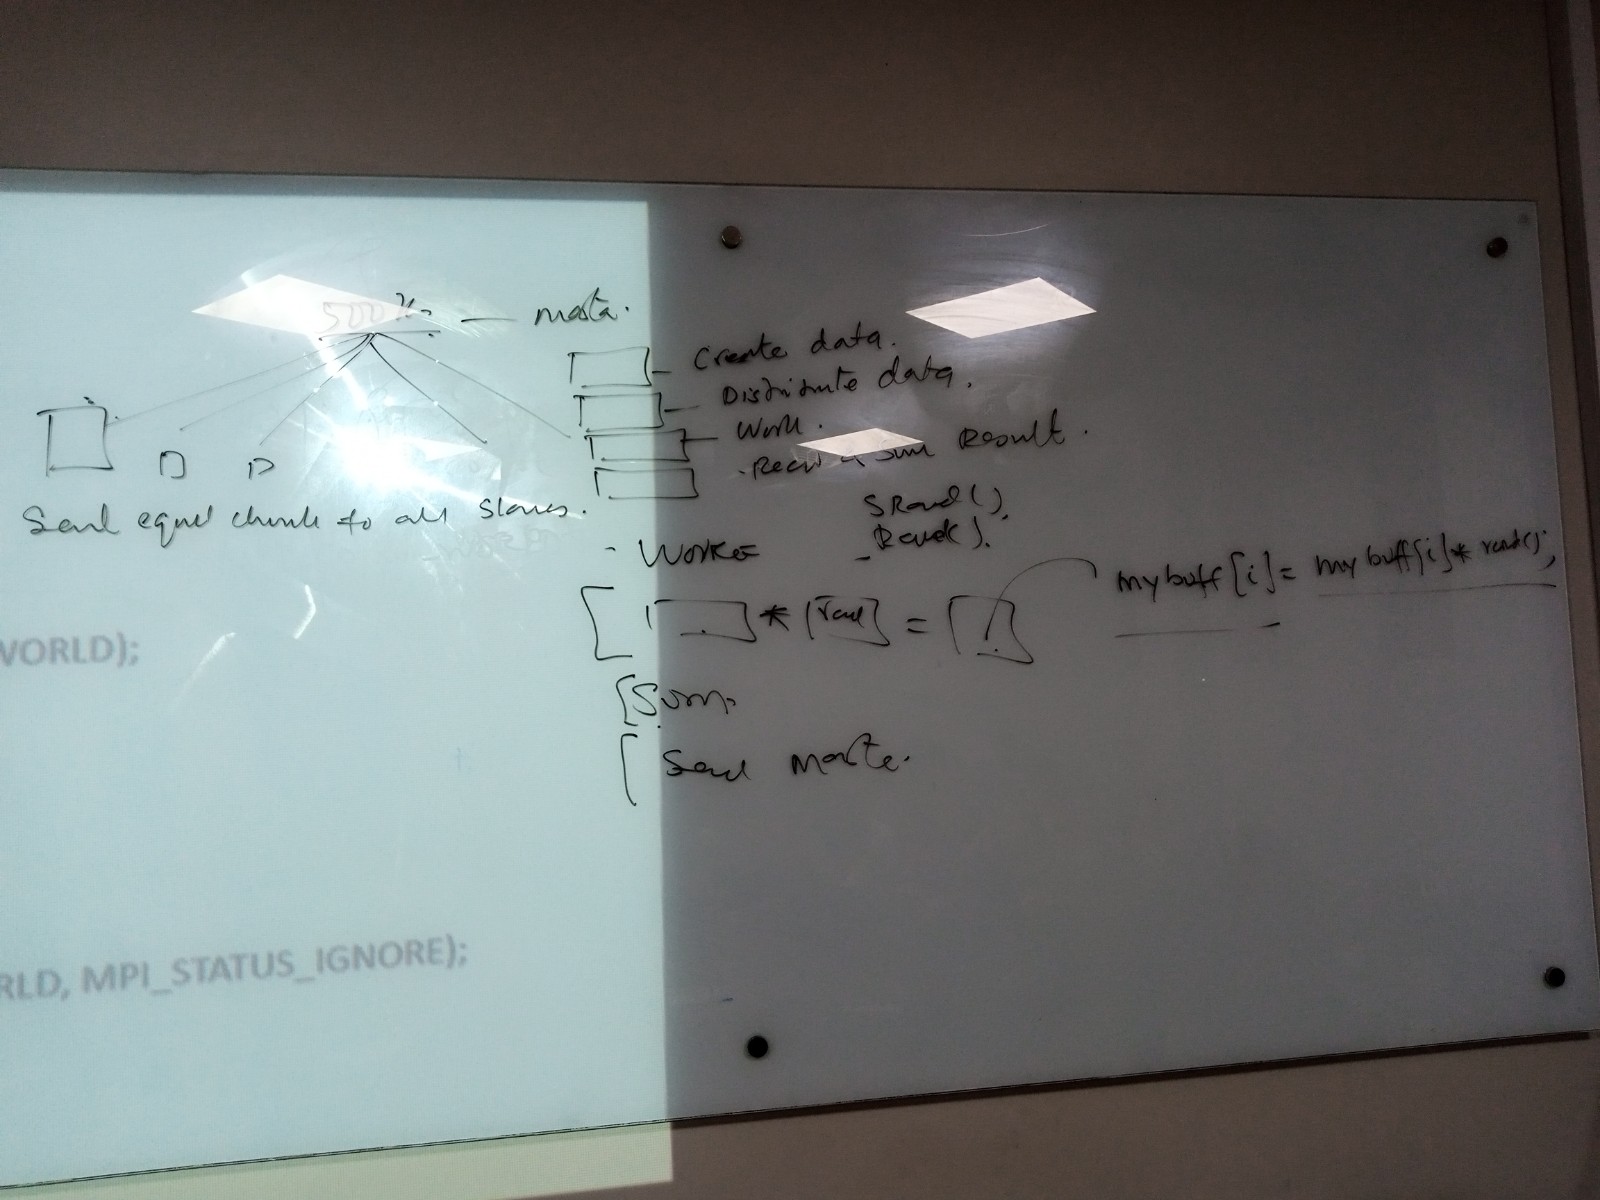 500K - Master.
Create data.
Distribute data.
Work.
Recv & Sum Result.
Send equal chunk to all Slaves.
SRand()
Rand().
- Worker
* rand =
mybuff[i] = mybuff[i] * rand();
WORLD);
Sum.
Send Master.
RLD, MPI_STATUS_IGNORE);